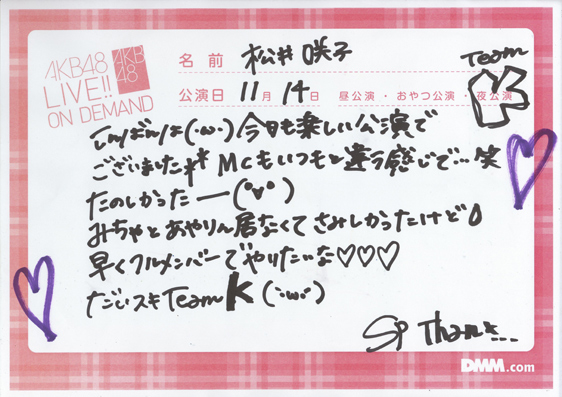 AKB48
LIVE!!
ON DEMAND
AKB
48
名前 松井咲子
Team
K
公演日 11月14日 昼公演・おやつ公演・夜公演
こんばんは(・ω・)今日も楽しい公演で
ございました
MCもいつもと違う感じで…笑
たのしかったー(°v°)
みちゃとあやりん居なくてさみしかったけど
早くフルメンバーでやりたいな♡♡♡
だいスキTeam K (・ω・)
SP Thanks...
DMM.com